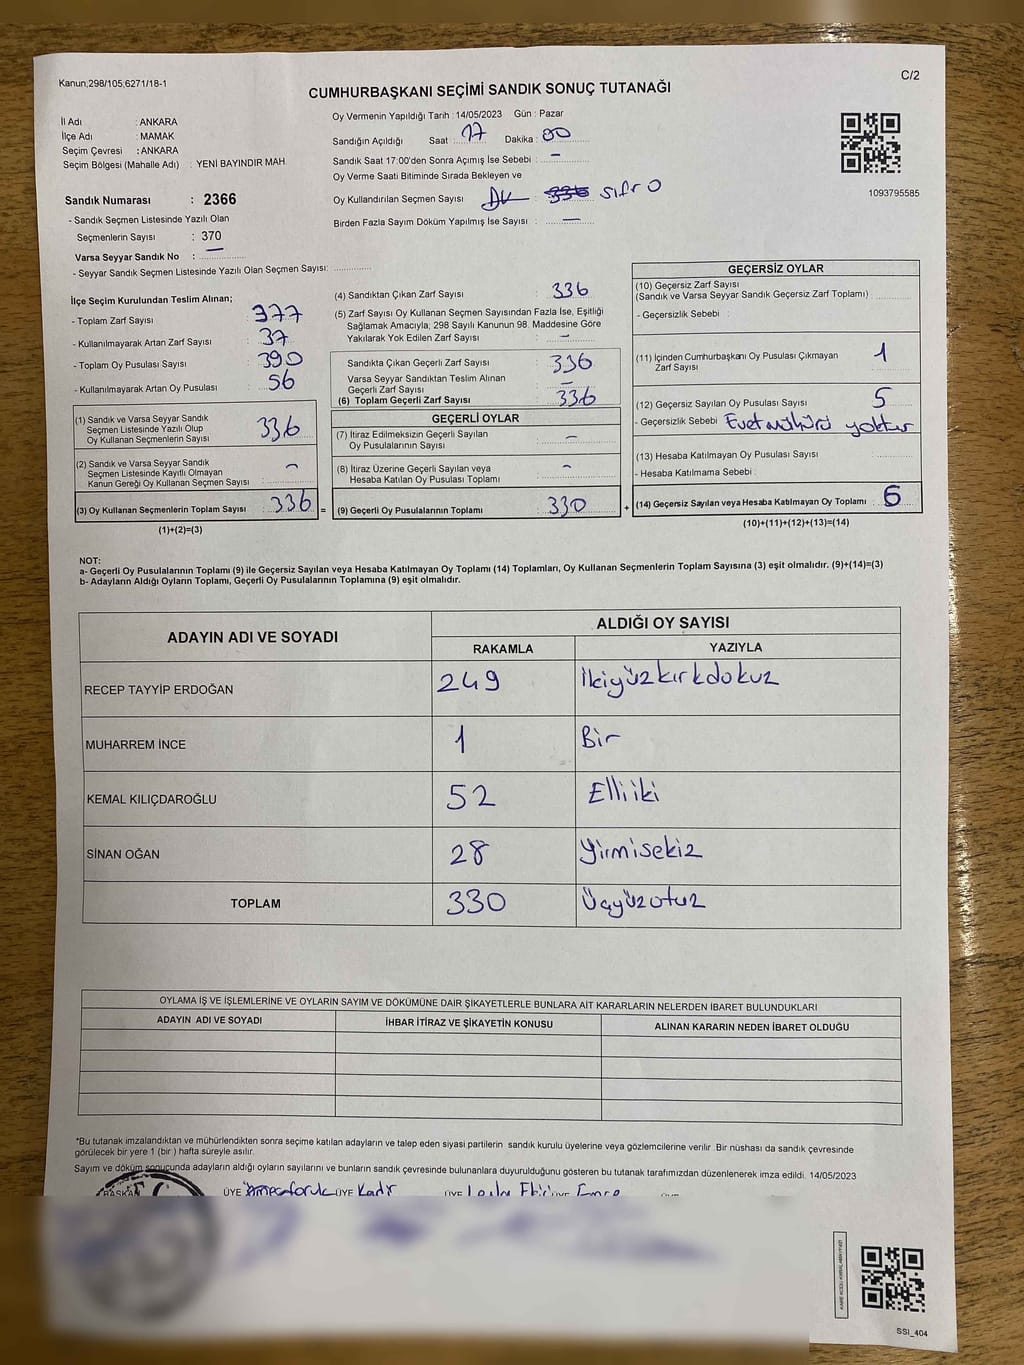 Kanun;298/105,6271/18-1
C/2
CUMHURBAŞKANI SEÇİMİ SANDIK SONUÇ TUTANAĞI
İl Adı : ANKARA
İlçe Adı : MAMAK
Seçim Çevresi : ANKARA
Seçim Bölgesi (Mahalle Adı) : YENİ BAYINDIR MAH.
Sandık Numarası : 2366
- Sandık Seçmen Listesinde Yazılı Olan
Seçmenlerin Sayısı : 370
Varsa Seyyar Sandık No : —
- Seyyar Sandık Seçmen Listesinde Yazılı Olan Seçmen Sayısı:
Oy Vermenin Yapıldığı Tarih : 14/05/2023 Gün : Pazar
Sandığın Açıldığı Saat : 17 Dakika : 00
Sandık Saat 17:00'den Sonra Açımış İse Sebebi : —
Oy Verme Saati Bitiminde Sırada Bekleyen ve
Oy Kullandırılan Seçmen Sayısı 336 sıfır 0
Birden Fazla Sayım Döküm Yapılmış İse Sayısı : —
1093795585
İlçe Seçim Kurulundan Teslim Alınan;
- Toplam Zarf Sayısı : 377
- Kullanılmayarak Artan Zarf Sayısı : 37
- Toplam Oy Pusulası Sayısı : 390
- Kullanılmayarak Artan Oy Pusulası : 56
(1) Sandık ve Varsa Seyyar Sandık
Seçmen Listesinde Yazılı Olup
Oy Kullanan Seçmenlerin Sayısı 336
(2) Sandık ve Varsa Seyyar Sandık
Seçmen Listesinde Kayıtlı Olmayan
Kanun Gereği Oy Kullanan Seçmen Sayısı : —
(3) Oy Kullanan Seçmenlerin Toplam Sayısı : 336 =
(1)+(2)=(3)
(4) Sandıktan Çıkan Zarf Sayısı 336
(5) Zarf Sayısı Oy Kullanan Seçmen Sayısından Fazla İse, Eşitliği
Sağlamak Amacıyla; 298 Sayılı Kanunun 98. Maddesine Göre
Yakılarak Yok Edilen Zarf Sayısı : —
Sandıkta Çıkan Geçerli Zarf Sayısı : 336
Varsa Seyyar Sandıktan Teslim Alınan
Geçerli Zarf Sayısı : —
(6) Toplam Geçerli Zarf Sayısı : 336
GEÇERLİ OYLAR
(7) İtiraz Edilmeksizin Geçerli Sayılan
Oy Pusulalarının Sayısı : —
(8) İtiraz Üzerine Geçerli Sayılan veya
Hesaba Katılan Oy Pusulası Toplamı : —
(9) Geçerli Oy Pusulalarının Toplamı : 330 +
GEÇERSİZ OYLAR
(10) Geçersiz Zarf Sayısı
(Sandık ve Varsa Seyyar Sandık Geçersiz Zarf Toplamı) :
- Geçersizlik Sebebi :
(11) İçinden Cumhurbaşkanı Oy Pusulası Çıkmayan
Zarf Sayısı 1
(12) Geçersiz Sayılan Oy Pusulası Sayısı 5
- Geçersizlik Sebebi : Evet mührü yoktur
(13) Hesaba Katılmayan Oy Pusulası Sayısı :
- Hesaba Katılmama Sebebi :
(14) Geçersiz Sayılan veya Hesaba Katılmayan Oy Toplamı : 6
(10)+(11)+(12)+(13)=(14)
NOT:
a- Geçerli Oy Pusulalarının Toplamı (9) ile Geçersiz Sayılan veya Hesaba Katılmayan Oy Toplamı (14) Toplamları, Oy Kullanan Seçmenlerin Toplam Sayısına (3) eşit olmalıdır. (9)+(14)=(3)
b- Adayların Aldığı Oyların Toplamı, Geçerli Oy Pusulalarının Toplamına (9) eşit olmalıdır.
ADAYIN ADI VE SOYADI ALDIĞI OY SAYISI
RAKAMLA YAZIYLA
RECEP TAYYİP ERDOĞAN 249 İkiyüzkırkdokuz
MUHARREM İNCE 1 Bir
KEMAL KILIÇDAROĞLU 52 Elliiki
SİNAN OĞAN 28 Yirmisekiz
TOPLAM 330 Üçyüzotuz
OYLAMA İŞ VE İŞLEMLERİNE VE OYLARIN SAYIM VE DÖKÜMÜNE DAİR ŞİKAYETLERLE BUNLARA AİT KARARLARIN NELERDEN İBARET BULUNDUKLARI
ADAYIN ADI VE SOYADI İHBAR İTİRAZ VE ŞİKAYETİN KONUSU ALINAN KARARIN NEDEN İBARET OLDUĞU
*Bu tutanak imzalandıktan ve mühürlendikten sonra seçime katılan adayların ve talep eden siyasi partilerin sandık kurulu üyelerine veya gözlemcilerine verilir. Bir nüshası da sandık çevresinde
görülecek bir yere 1 (bir ) hafta süreyle asılır.
Sayım ve döküm sonucunda adayların aldığı oyların sayılarını ve bunların sandık çevresinde bulunanlara duyurulduğunu gösteren bu tutanak tarafımızdan düzenlenerek imza edildi. 14/05/2023
BAŞKAN ÜYE ÜYE Kadir ÜYE Leyla ÜYE Emre
SSI_404